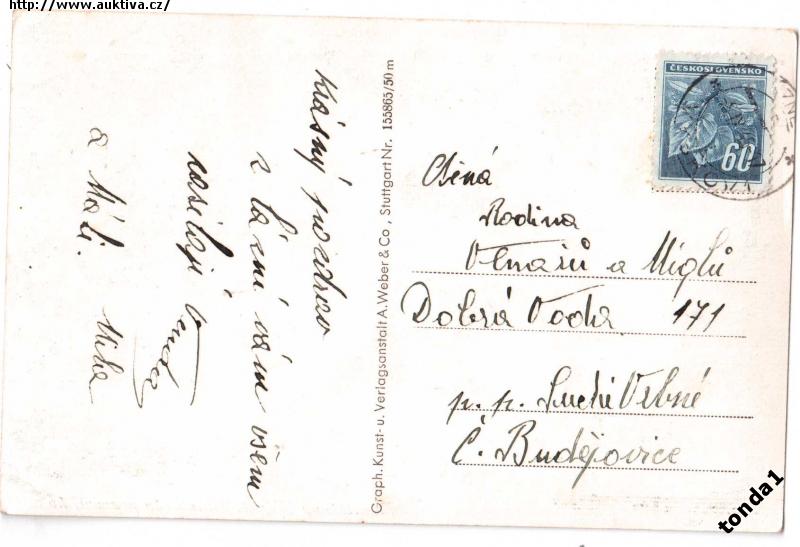 http://www.auktiva.cz/
krásný pozdrav
z lázní vám všem
zasílají Venda
a Máli. Míla
Graph. Kunst- u. Verlagsanstalt A. Weber & Co., Stuttgart Nr. 155865/50 m
ČESKOSLOVENSKO
60
Ctěná
Rodina
a Miglů
Dobrá Voda 171
p. p. Suché Vrbné
Č. Budějovice
tonda1